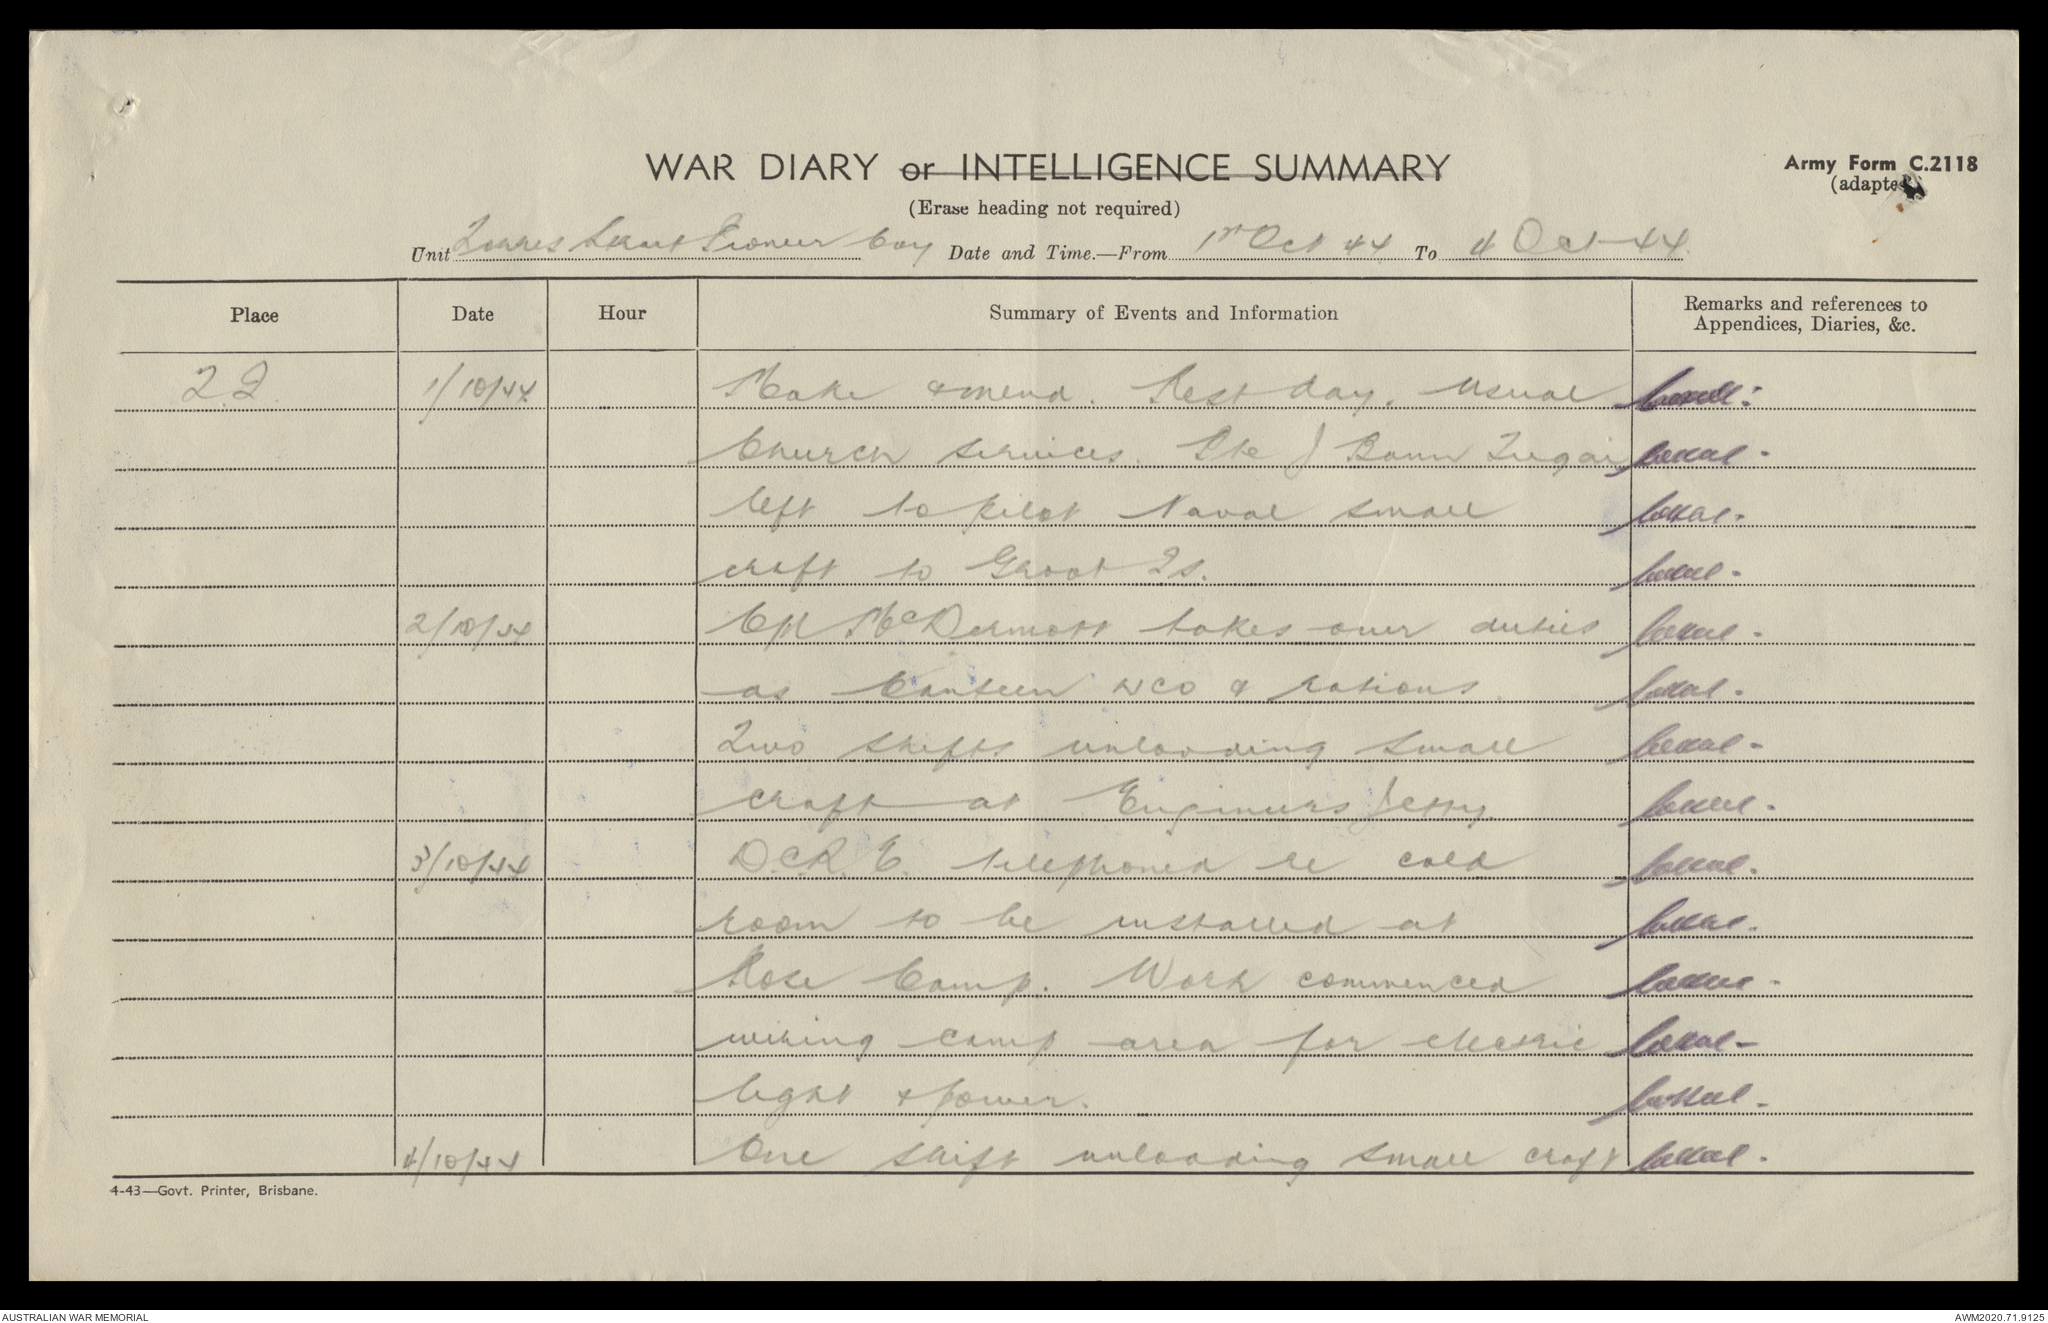 WAR DIARY or INTELLIGENCE SUMMARY
Army Form C.2118
(adapted)
(Erase heading not required)
Unit Torres Strait Pioneer Coy Date and Time.—From 1st Oct 44 To 4 Oct 44.
Place Date Hour Summary of Events and Information Remarks and references to
Appendices, Diaries, &c.
T.I. 1/10/44 Make & mend. Rest day. Usual
Church services. Pte J
left to pilot Naval small
craft to Groot Is.
2/10/44 Cpl McDermott takes over duties
as Canteen NCO & rations.
Two shifts unloading small
craft at Engineers Jetty.
3/10/44 D.C.R.E. telephoned re cold
room to be installed at
Rose Camp. Work commenced
wiring camp area for electric
light & power.
4/10/44 One shift unloading small craft
4-43—Govt. Printer, Brisbane.
AUSTRALIAN WAR MEMORIAL AWM2020.71.9125